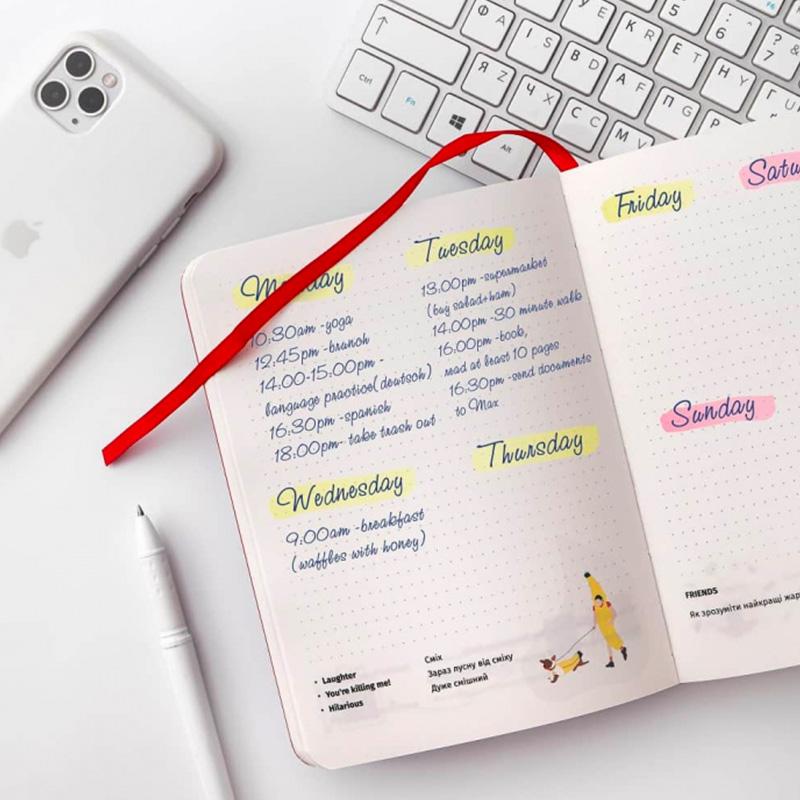 Monday
10:30am -yoga
12.45pm -brunch
14.00-15:00pm -
language practice(deutsch)
16:30pm -spanish
18:00pm- take trash out
Tuesday
13.00pm -supermarket
(buy salad+ham)
14.00pm -30 minute walk
16:00pm -book,
read at least 10 pages
16:30pm -send documents
to Max
Wednesday
9:00am -breakfast
(waffles with honey)
Thursday
• Laughter
• You're killing me!
• Hilarious
Сміх
Зараз лусну від сміху
Дуже смішний
Friday
Satu
Sunday
FRIENDS
Як зрозуміти найкращі жар
Ctrl
Fn
Alt
Ф A
І S
В D
А F
П G
Я Z
Ч X
С C
М V
У E
К R
Е T
Н Y
5
6
7
&
F6